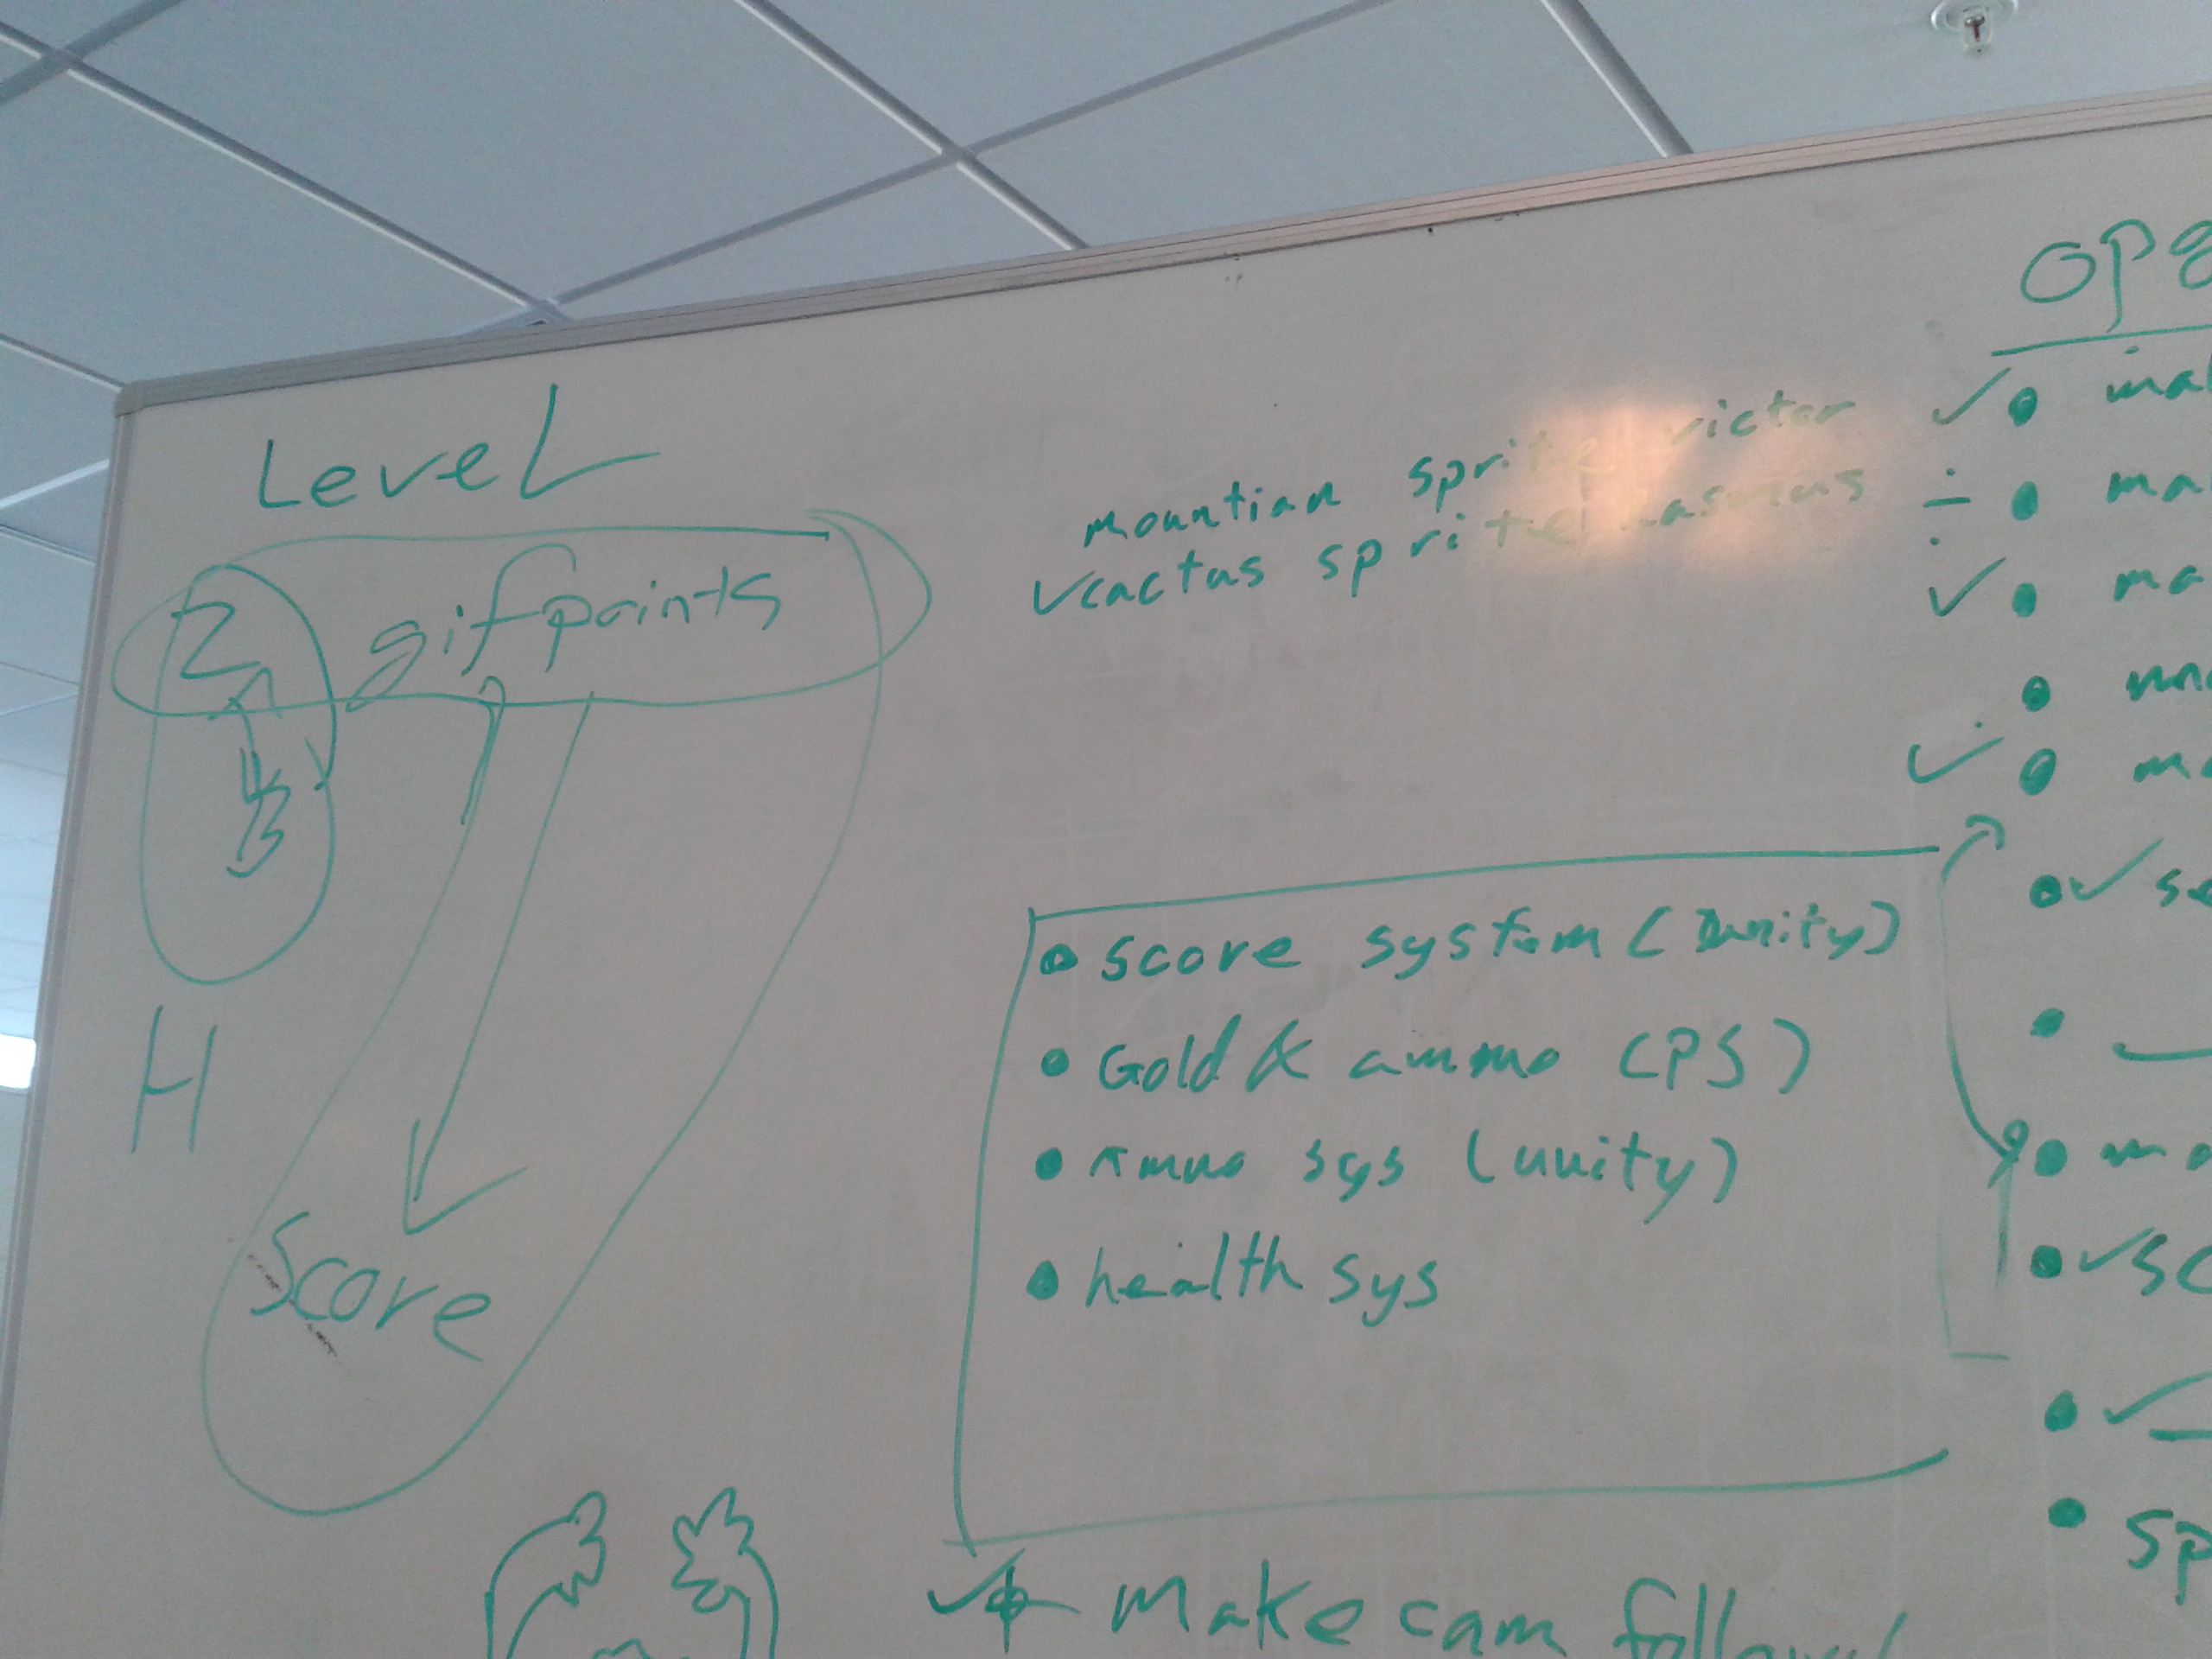 Level
Z gifpoints
B
H
Score
mountian sprite victor
✓cactus sprite Rasmus
• score system (unity)
• Gold & ammo (PS)
• Ammo sys (unity)
• health sys
✓ Make cam follow
opg
✓ •
÷ •
✓ •
•
✓ •
• ✓ se
•
• ma
• ✓ sc
• ✓
• sp